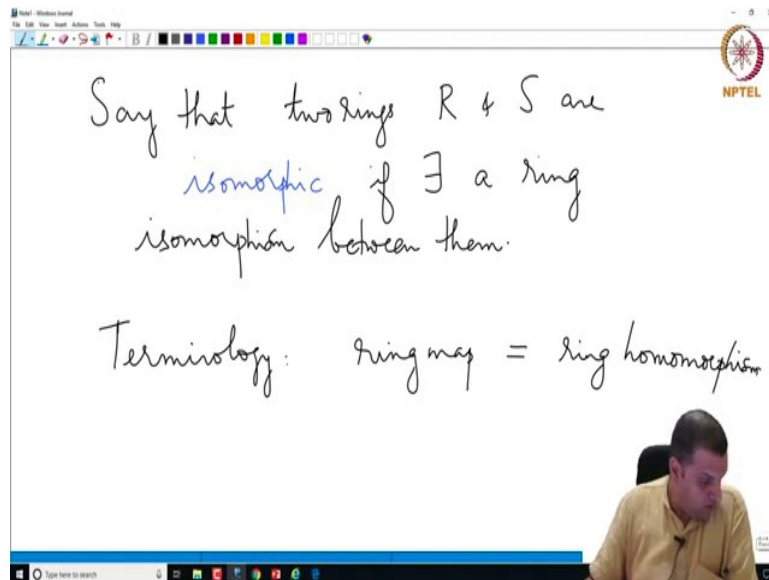 Note1 - Windows Journal
File Edit View Insert Actions Tools Help
NPTEL
Say that two rings R & S are
isomorphic if ∃ a ring
isomorphism between them.
Terminology: ring map = ring homomorphism
Type here to search